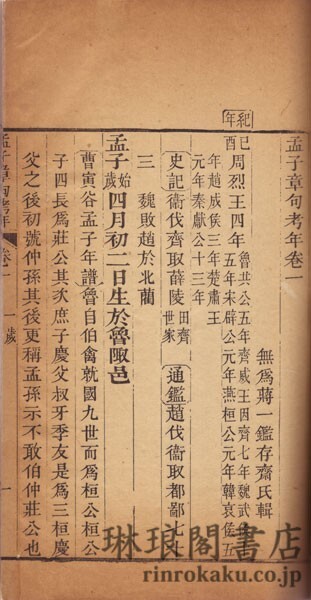 孟子章句考年卷一
無爲蔣一鑑存齋氏輯
紀年
己酉
周烈王四年
魯共公五年齊威王因齊七年魏武侯
五年宋辟公元年燕桓公元年韓哀侯五
年趙成侯三年楚肅王
元年秦獻公十三年
史記衞伐齊取薛陵田齊世家 通鑑趙伐衞取都鄙七十
三 魏敗趙於北藺
孟子始歲四月初二日生於魯陬邑
曹寅谷孟子年譜魯自伯禽就國九世而爲桓公桓公
子四長爲莊公其次庶子慶父叔牙季友是爲三桓慶
父之後初號仲孫其後更稱孟孫示不敢伯仲莊公也
孟子章句考年 卷一 一歲 一
琳琅閣書店
rinrokaku.co.jp